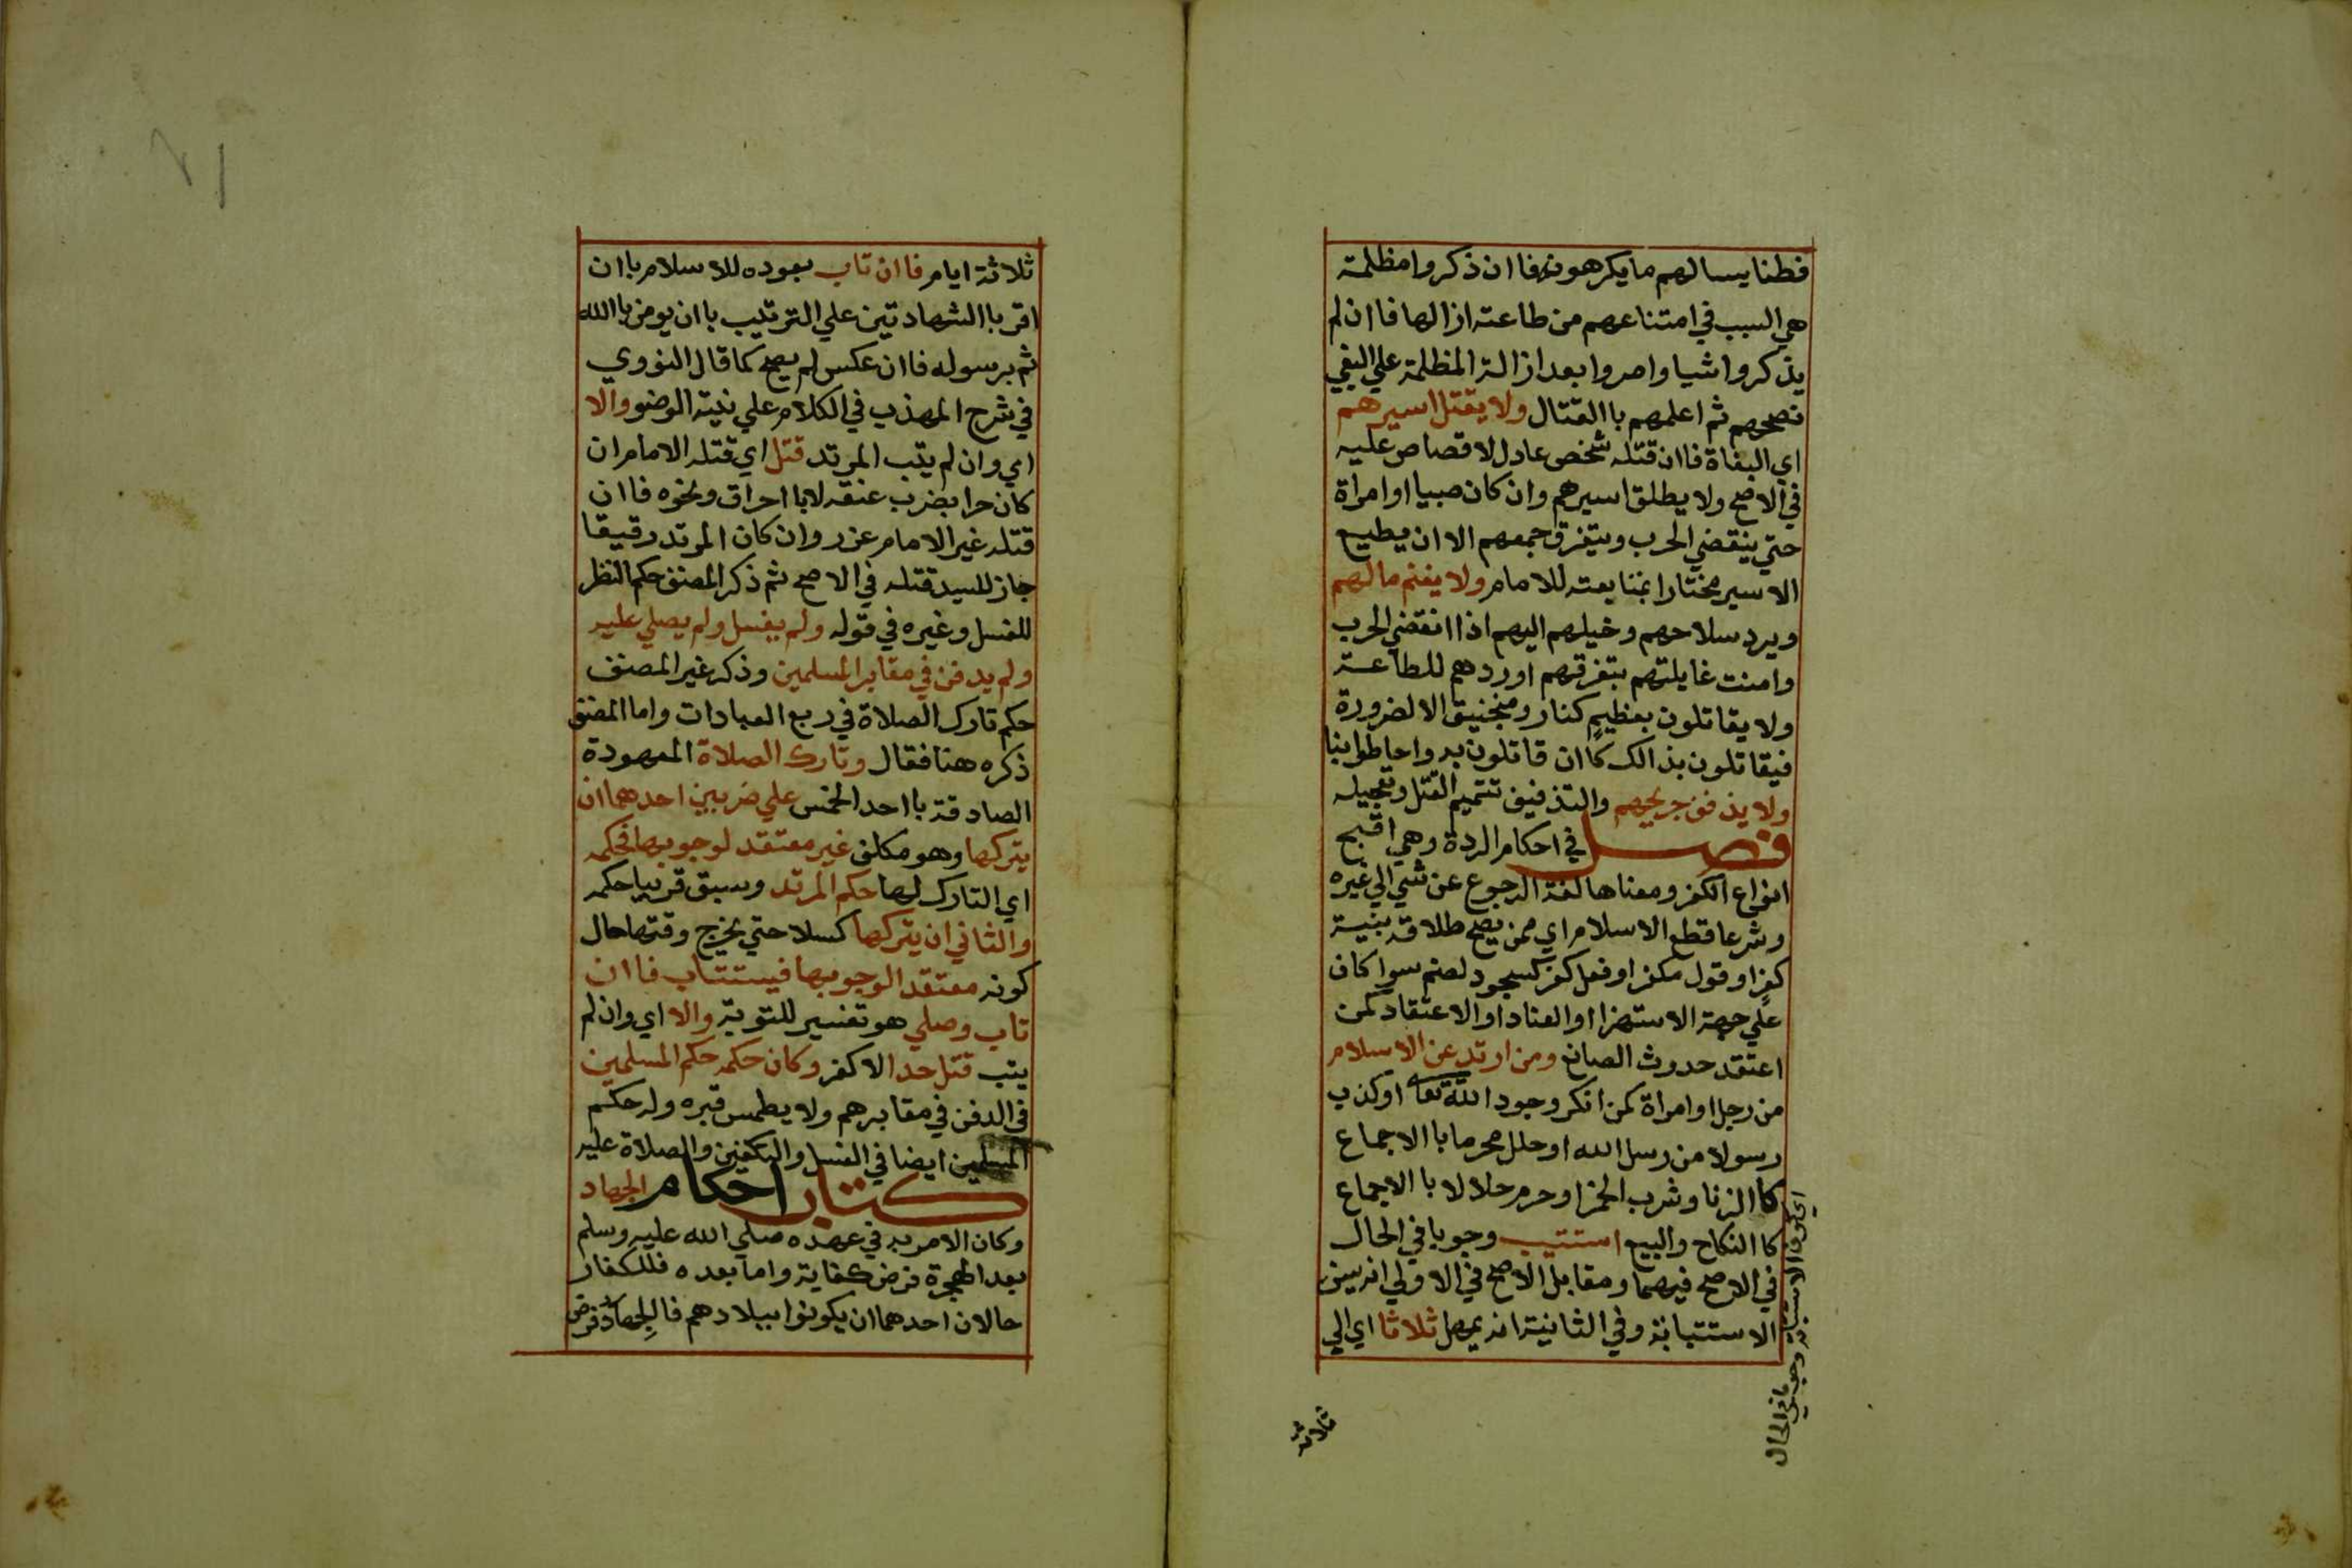 فطنا يسالهم ما يكرهونه فاان ذكروا مظلمة
هي السبب في امتناعهم من طاعته ازالها فاان لم
يذكروا شيا واصروا بعد ازالة المظلمة علي البغي
نصحهم ثم اعلمهم باالقتال ولا يقتل اسيرهم
اي البغاة فاان قتله شخص عادل لا قصاص عليه
في الاصح ولا يطلق اسيرهم وان كان صبيا او امراة
حتي ينقضي الحرب ويتفرق جمعهم الا ان يطيع
الاسير مختارا بمتابعته للامام ولا يغنم مالهم
ويرد سلاحهم وخيلهم اليهم اذا انقضي الحرب
وامنت غايلتهم بتفرقهم او ردهم للطاعة
ولا يقاتلون بعظيم كنار ومنجنيق الا لضرورة
فيقاتلون بذالك كاان قاتلون به واحاطوا بنا
ولا يذفف جريحهم والتذفيف تتميم القتل وتعجيله
فصل في احكام الردة وهي اقبح
انواع الكفر ومعناها لغة الرجوع عن شي الي غيره
وشرعا قطع الاسلام اي ممن يصح طلاقه بنية
كفر او قول مكفر او فعل كفر كسجود لصنم سوا كان
علي جهة الاستهزا او العناد او الاعتقاد كمن
اعتقد حدوث الصانع ومن ارتد عن الاسلام
من رجل او امراة كمن انكر وجود الله تعا او كذب
رسولا من رسل الله او حلل محرما باالاجماع
كاالزنا وشرب الخمر او حرم حلالا باالاجماع
كاالنكاح والبيع استتيب وجوبا في الحال
في الاصح فيهما ومقابل الاصح في الاولي انه يسن
الاستتبانة وفي الثانية انه يمهل ثلاثا اي الي
ثلاثة
ثلاثة ايام فاان تاب بعوده للاسلام باان
اقر باالشهادتين علي الترتيب باان يومن باالله
ثم برسوله فاان عكس لم يصح كما قال النووي
في شرح المهذب في الكلام علي نية الوضو والا
اي وان لم يتب المرتد قتل اي قتله الامام ان
كان حرا بضرب عنقه لا باا حراق ونحوه فاان
قتله غير الامام عزر وان كان المرتد رقيقا
جاز للسيد قتله في الاصح ثم ذكر المصنف حكم النظر
للغسل وغيره في قوله ولم يغسل ولم يصلي عليه
ولم يدفن في مقابر المسلمين وذكر غير المصنف
حكم تارك الصلاة في ربع العبادات واما المصنف
ذكره هنا فقال وتارك الصلاة المعهودة
الصادقة باا حد الخمس علي ضربين احدهما ان
يتركها وهو مكلف غير معتقد لوجوبها فحكمه
اي التارك لها حكم المرتد وسبق قريبا حكمه
والثاني ان يتركها كسلا حتي يخرج وقتها حال
كونه معتقد الوجوبها فيستتاب فاان
تاب وصلي هو تفسير للتوبة والا اي وان لم
يتب قتل حدا لا كفر وكان حكمه حكم المسلمين
في الدفن في مقابرهم ولا يطمس قبره وله حكم
المسلمين ايضا في الغسل والتكفين والصلاة عليه
كتاب احكام الجهاد
وكان الامر به في عهده صلي الله عليه وسلم
بعد الهجرة فرض كفاية واما بعده فللكفار
حالان احدهما ان يكونوا ببلادهم فالجهاد فرض